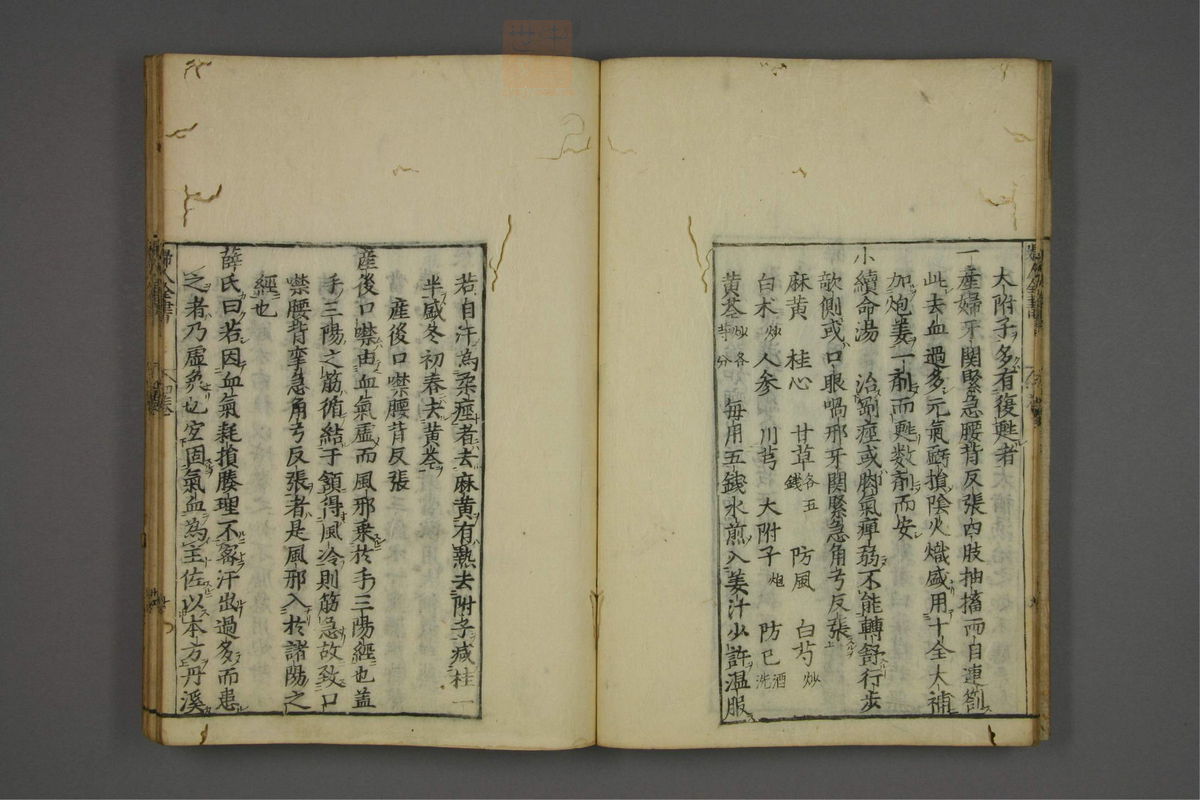 大附子多有復甦者
一産婦牙關緊急腰背反張四肢抽搐而目連劄
此去血過多元氣虧損陰火熾盛用十全大補
加炮姜一劑而甦數劑而安
小續命湯 治剛痙或脚氣痺弱不能轉舒行步
欹側或口眼喎邪牙關緊急角弓反張
麻黄 桂心 甘草各五錢 防風 白芍炒
白朮炒 人参 川芎 大附子炮 防已酒洗
黄芩炒各半分 每用五錢水煎入姜汁少許温服
若自汗為柔痙者去麻黄有熱去附子减桂一
半盛冬初春去黄芩
産後口噤腰背反張
産後口噤由血氣虚而風邪乗於手三陽經也盖
手三陽之筋循結于頷得風冷則筋急故致口
噤腰背攣急角弓反張者是風邪入於諸陽之
經也
薛氏曰若因血氣耗損腠理不密汗出過多而患
之者乃虚象也宜固氣血為主佐以本方丹溪
婦人全書